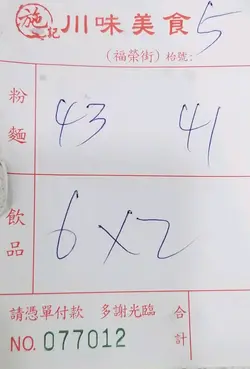 施記 川味美食
(福榮街) 枱號: 5
粉麵 43 41
飲品 6 x 2
請憑單付款 多謝光臨 合計
NO. 077012